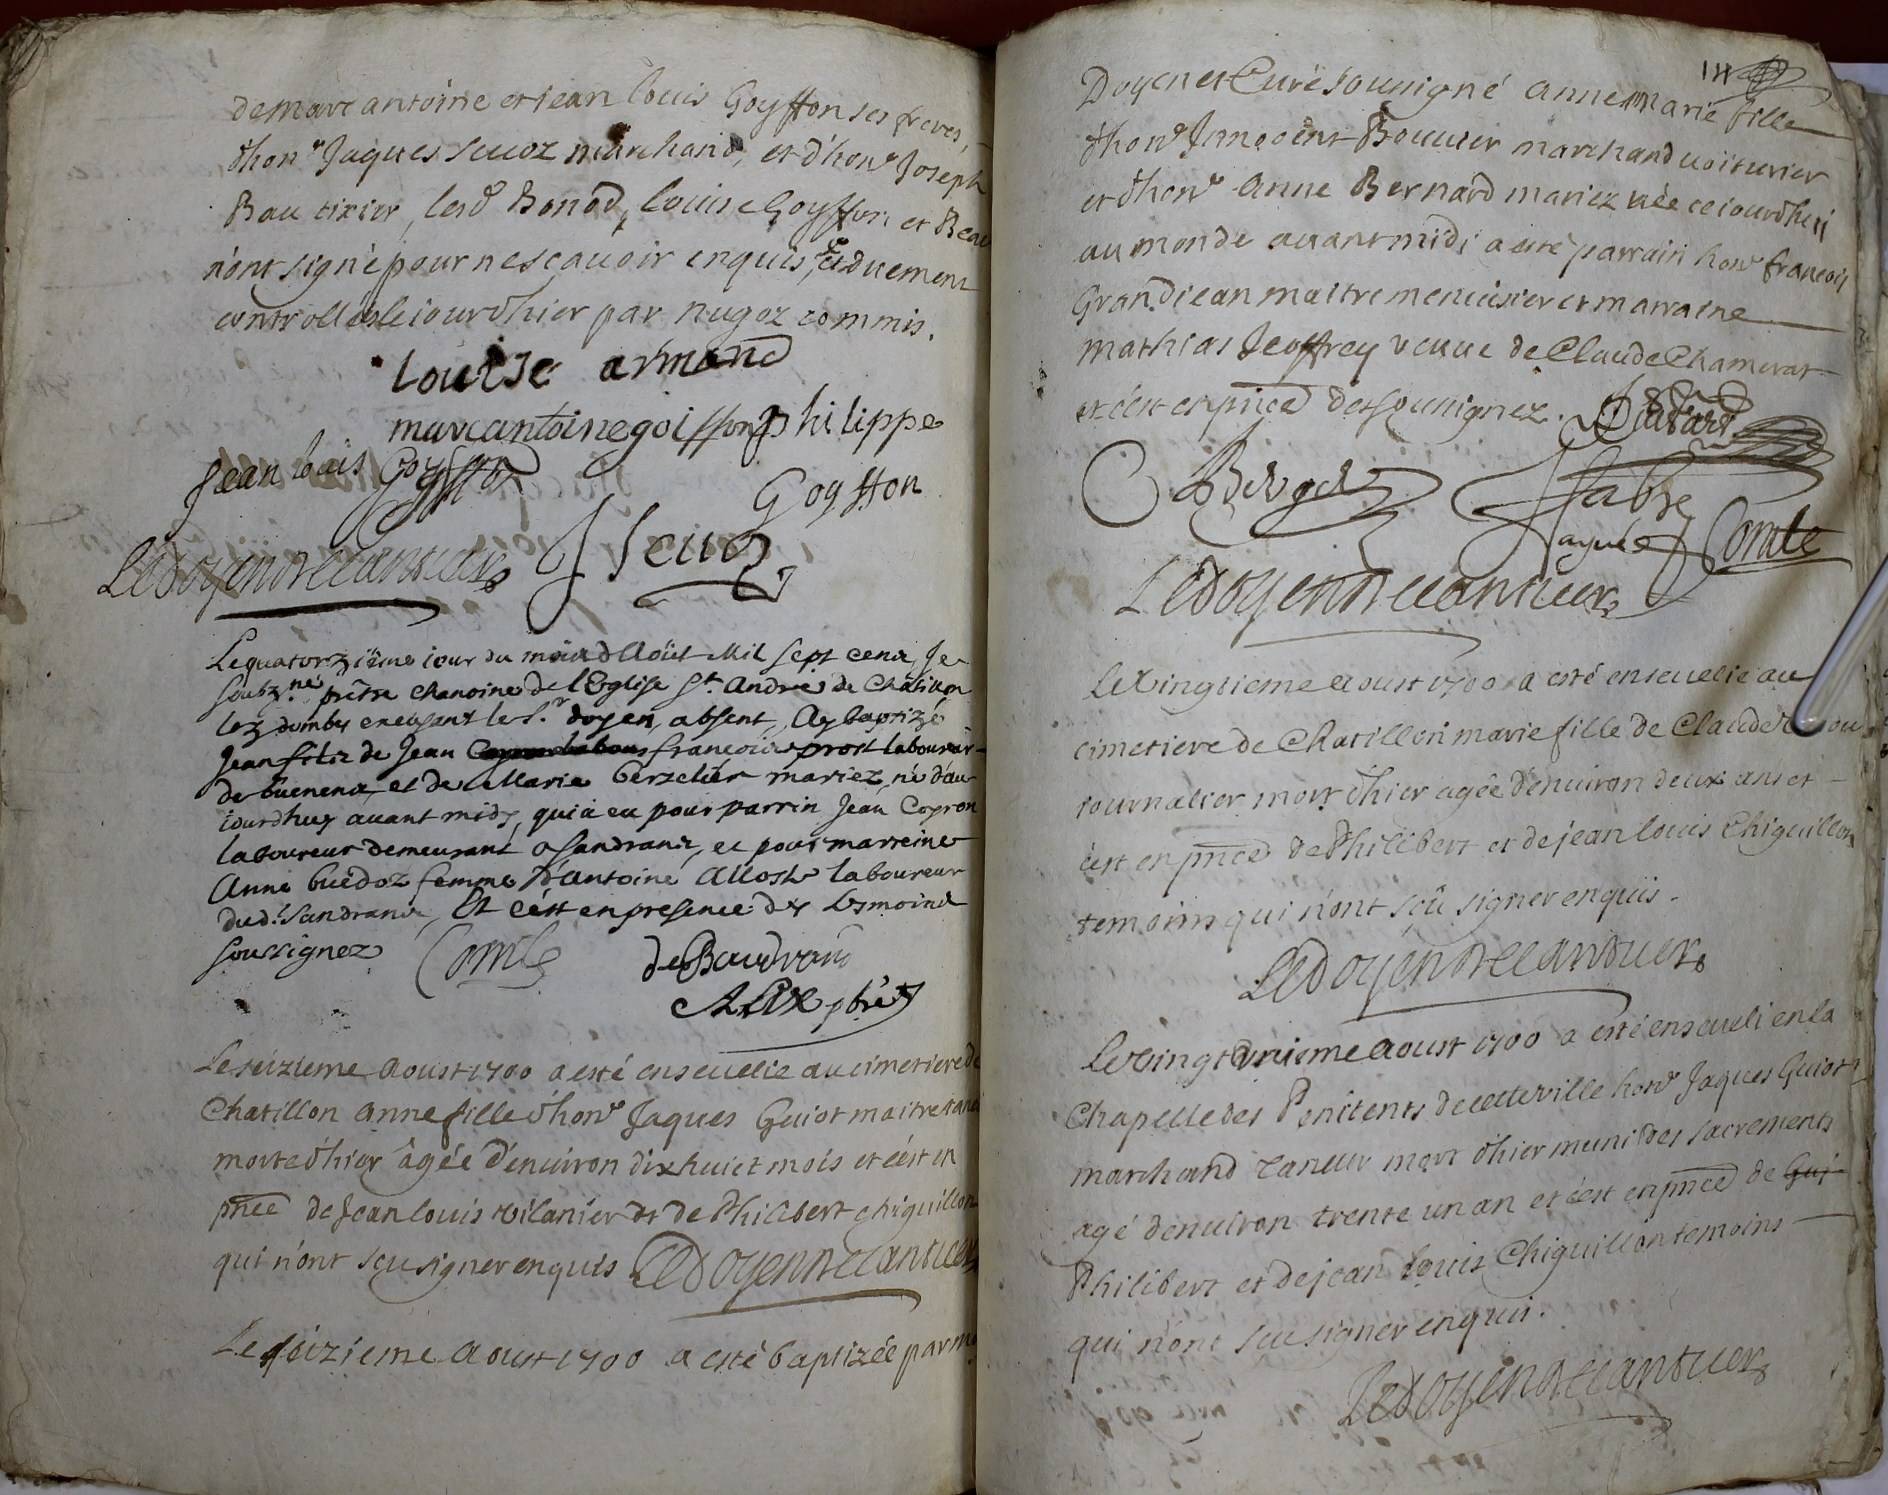 de marc antoine et jean louis Goyffon ses freres,
d'hon.e Jaques seuoz marchand, et d'hon.e Joseph
Bau tixier, lesd Bonod, louise Goyffon et Beau
n'ont signé pour ne sçauoir enquis, et duement
controllés le iourdhier par nugoz commis.
louise armand
marcantoine goiffon philippe
jean louis Goyffon Goyffon
Le doyen J Seuoz
Le quatorziéme iour du mois d'Aoüt Mil sept cens, Je
soubz.né prêtre chanoine de l'Eglise St. André de Chatillon
lez dombes en l'absent le S.r doyen, absent, Ay baptizé
Jean filz de Jean françois prost laboureur
de buenenc, et de Marie berzelier mariez, né d'au
iourdhuy auant midy, qui à eu pour parrin Jean Coyron
laboureur demeurant a sandrans, et pour marreine
Anne buédoz femme d'Antoine Allost laboureur
dud.t sandrans, Et c'ést en presence des tesmoins
soussignez Comte de Baudrand
Alix pbre
Le seizieme aoust 1700 a esté enseuelie au cimetiere de
Chatillon anne fille d'hon.e Jaques Guiot maitre tan
morte d'hier âgée d'enuiron dix huict mois et c'est en
pñce de Jean louis vilanier et de Philibert chiguillon
qui n'ont sçeu signer enquis Le doyen
Le seizieme aoust 1700 a esté baptizée par moy
Doyen et Curé sousigné anne marie fille
d'hon.e Innocent Bouuier marchand voiturier
et d'hon.e anne Bernard mariez née ce iourdheu
au monde auant midi a esté parrain hon.e françois
Grandjean maitre menuisier et marraine
mathias Jeoffrey veuue de Claude Chamerat
et c'est en pñce des sousignez. Dutard
C Berger J fabre
Jaque Comte
Le doyen
Le Vingtieme aoust 1700 a esté enseuelie au
cimetiere de Chatillon marie fille de Claude
iournalier mort d'hier agée d'enuiron deux ans et
c'est en pñce de Philibert et de jean louis Chiguillon
temoins qui n'ont sçû signer enquis.
Le doyen
Le Vingt unieme aoust 1700 a esté enseueli en la
Chapelle des Penitents de cette ville hon.e Jaques Guiot
marchand taneur mort d'hier muni des sacrements
agé denuiron trente un an et c'est en pñce de Gui
Philibert et de jean louis Chiguillon temoins
qui n'ont sceu signer enquis.
Le doyen